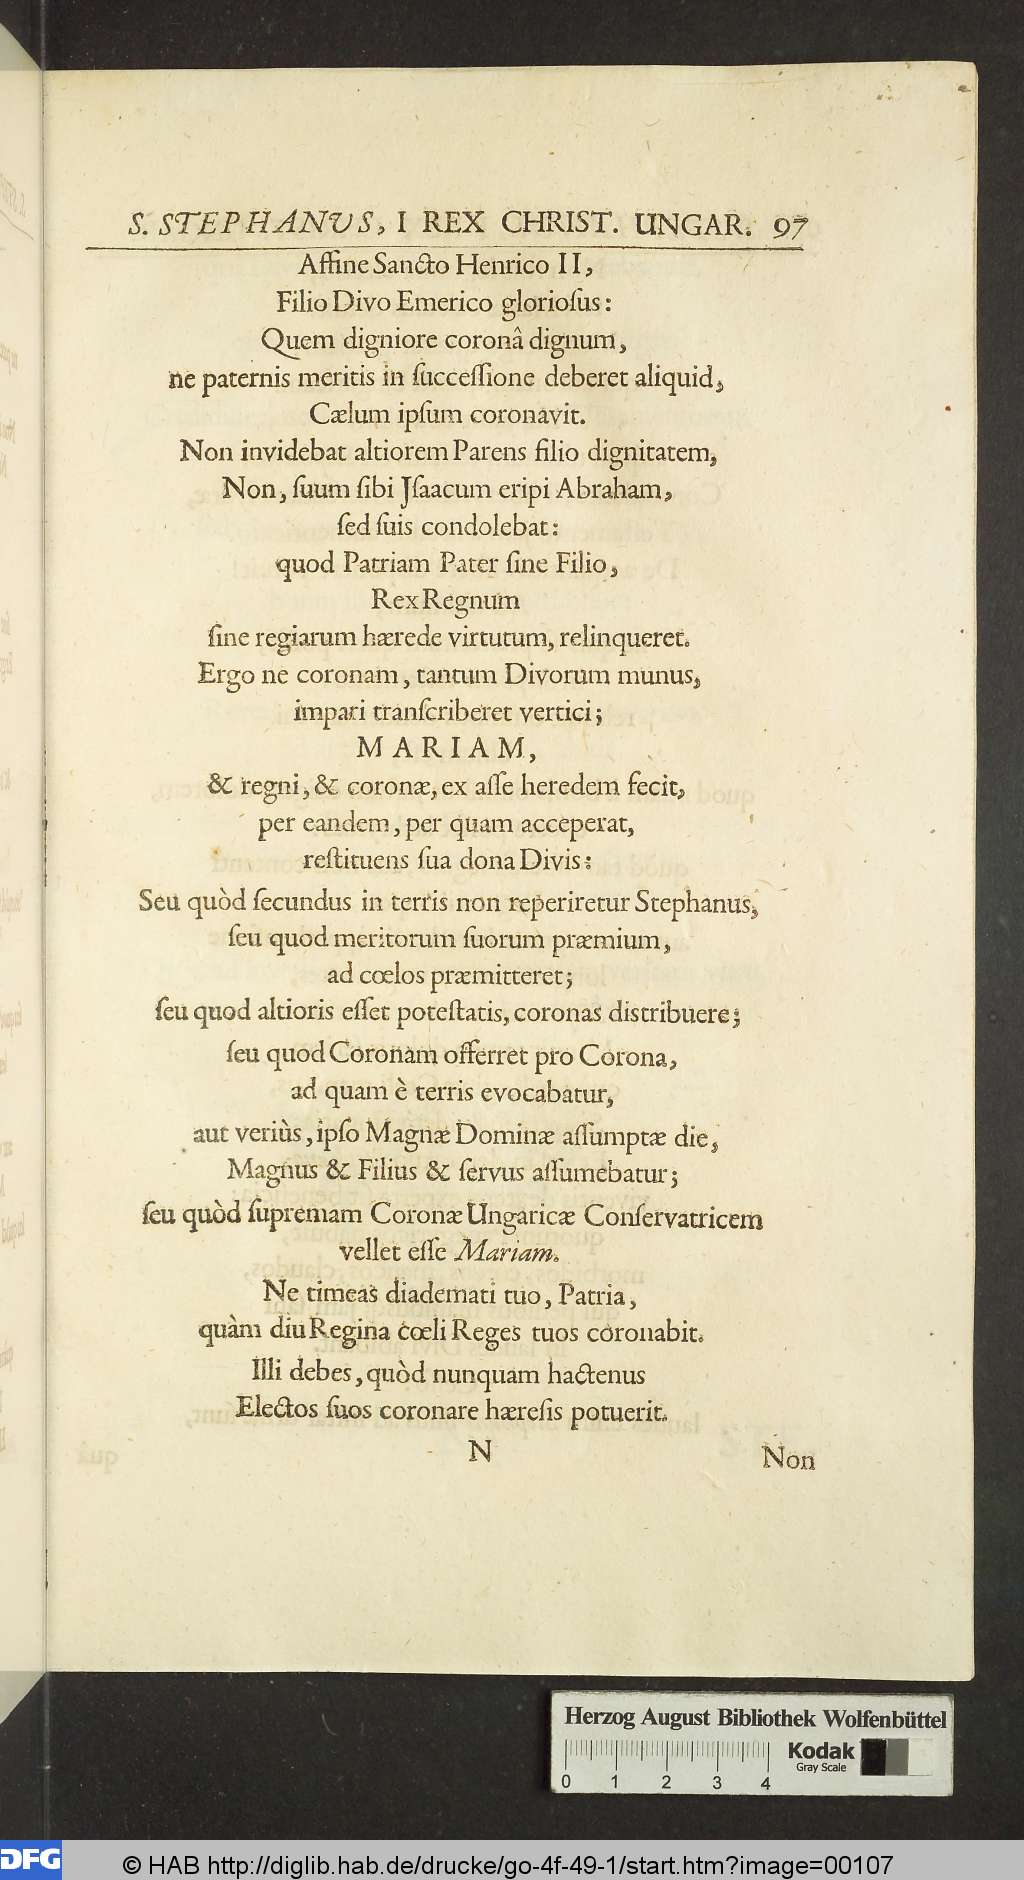 S. STEPHANVS, I REX CHRIST. UNGAR. 97
Affine Sancto Henrico II,
Filio Divo Emerico glorioſus:
Quem digniore coronâ dignum,
ne paternis meritis in ſucceſſione deberet aliquid,
Cælum ipſum coronavit.
Non invidebat altiorem Parens filio dignitatem,
Non, ſuum ſibi Jſaacum eripi Abraham,
ſed ſuis condolebat:
quod Patriam Pater ſine Filio,
Rex Regnum
ſine regiarum hærede virtutum, relinqueret.
Ergo ne coronam, tantum Divorum munus,
impari tranſcriberet vertici;
MARIAM,
& regni, & coronæ, ex aſſe heredem fecit,
per eandem, per quam acceperat,
reſtituens ſua dona Divis:
Seu quòd ſecundus in terris non reperiretur Stephanus,
ſeu quod meritorum ſuorum præmium,
ad cœlos præmitteret;
ſeu quod altioris eſſet poteſtatis, coronas distribuere;
ſeu quod Coronam offerret pro Corona,
ad quam è terris evocabatur,
aut veriùs, ipſo Magnæ Dominæ aſſumptæ die,
Magnus & Filius & ſervus aſſumebatur;
ſeu quòd ſupremam Coronæ Ungaricæ Conſervatricem
vellet eſſe Mariam.
Ne timeas diademati tuo, Patria,
quàm diu Regina cœli Reges tuos coronabit.
Illi debes, quòd nunquam hactenus
Electos ſuos coronare hæreſis potuerit.
N
Non
Herzog August Bibliothek Wolfenbüttel
Kodak
Gray Scale
0 1 2 3 4
DFG
© HAB http://diglib.hab.de/drucke/go-4f-49-1/start.htm?image=00107